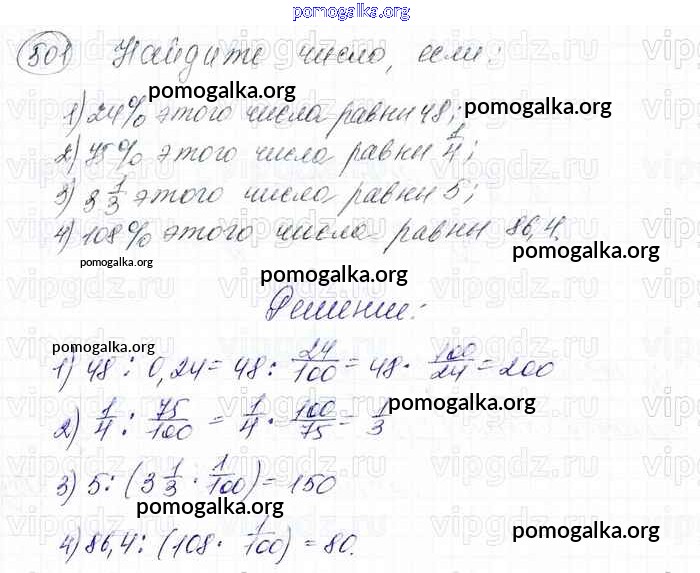 pomogalka.org
501 Найдите число, если:
pomogalka.org
1) 24% этого числа равны 48; pomogalka.org
2) 75% этого числа равны 1/4;
3) 3 1/3 этого числа равны 5;
4) 108% этого числа равны 86,4.
pomogalka.org pomogalka.org
pomogalka.org
Решение:
pomogalka.org
1) 48 : 0,24 = 48 : 24/100 = 48 · 100/24 = 200
pomogalka.org
2) 1/4 : 75/100 = 1/4 · 100/75 = 1/3
3) 5 : (3 1/3 · 1/100) = 150
pomogalka.org
4) 86,4 : (108 · 1/100) = 80.
pomogalka.org